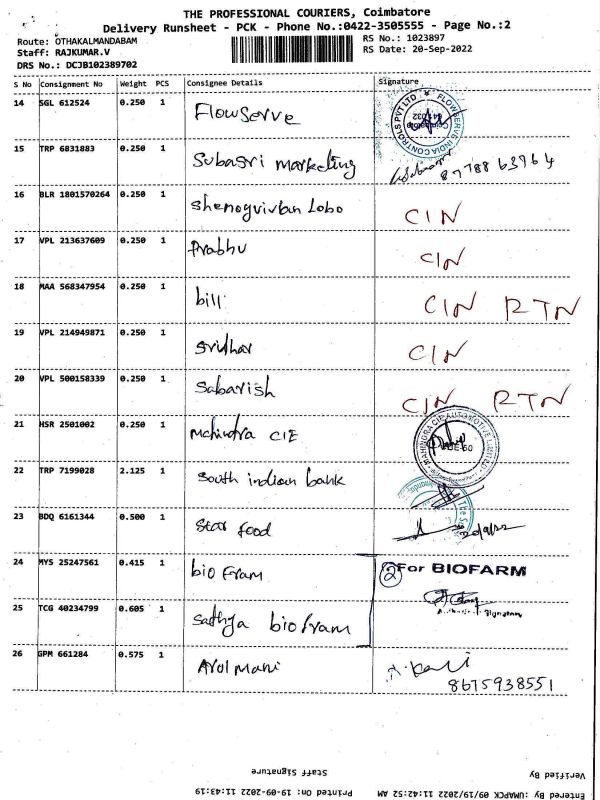 THE PROFESSIONAL COURIERS, Coimbatore
Delivery Runsheet - PCK - Phone No.:0422-3505555 - Page No.:2
Route: OTHAKALMANDABAM RS No.: 1023897
Staff: RAJKUMAR.V RS Date: 20-Sep-2022
DRS No.: DCJB102389702
S No Consignment No Weight PCS Consignee Details Signature
14 SGL 612524 0.250 1 Flowserve FLOWSERVE INDIA CONTROLS PVT LTD Coimbatore 641032
15 TRP 6831883 0.250 1 Subasri marketing 8778863764
16 BLR 1801570264 0.250 1 Lobo CIN
17 VPL 213637609 0.250 1 Prabhu CIN
18 MAA 568347954 0.250 1 bill CIN RTN
19 VPL 214949871 0.250 1 Sridhar CIN
20 VPL 500158339 0.250 1 Sabarish CIN RTN
21 HSR 2501002 0.250 1 Mahindra CIE MAHINDRA CIE AUTOMOTIVE LIMITED
22 TRP 7199028 2.125 1 South indian bank
23 BDQ 6161344 0.500 1 Star food
24 MYS 25247561 0.415 1 bio fram 2 For BIOFARM
25 TCG 40234799 0.605 1 Sathya bio fram
26 GPM 661284 0.575 1 Arol mani 8675938551
Staff Signature Verified By
Printed On: 19-09-2022 11:43:19 Entered By :UMAPCK 09/19/2022 11:42:52 AM